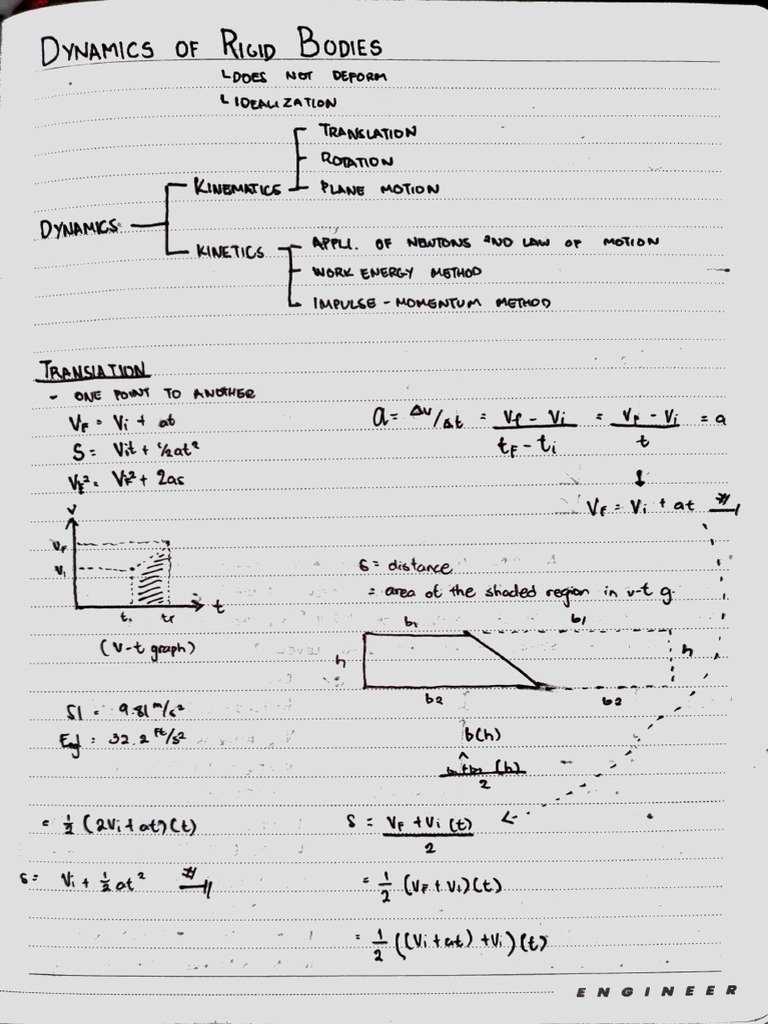 DYNAMICS OF RIGID BODIES
└ DOES NOT DEFORM
└ IDEALIZATION
TRANSLATION
ROTATION
KINEMATICS
PLANE MOTION
DYNAMICS
KINETICS
APPLI. OF NEWTONS 2ND LAW OF MOTION
WORK ENERGY METHOD
IMPULSE - MOMENTUM METHOD
TRANSLATION
- ONE POINT TO ANOTHER
VF = Vi + at
S = Vit + 1/2at²
VF² = VF² + 2as
a = Δv/Δt = (Vf - Vi)/(tF - ti) = (VF - Vi)/t = a
↓
VF = Vi + at #
V
VF
Vi
ti tF
t
(V-t graph)
S = distance
= area of the shaded region in v-t g.
b1 b1
h h
b2 b2
SI = 9.81 m/s²
Eng : 32.2 ft/s²
b(h)
^
b1+b2 (h)
2
= 1/2 (2Vi + at)(t)
S = Vi + 1/2 at² #
S = (VF + Vi (t))/2
= 1/2 (VF + Vi)(t)
= 1/2 ((Vi + at) + Vi)(t)
ENGINEER